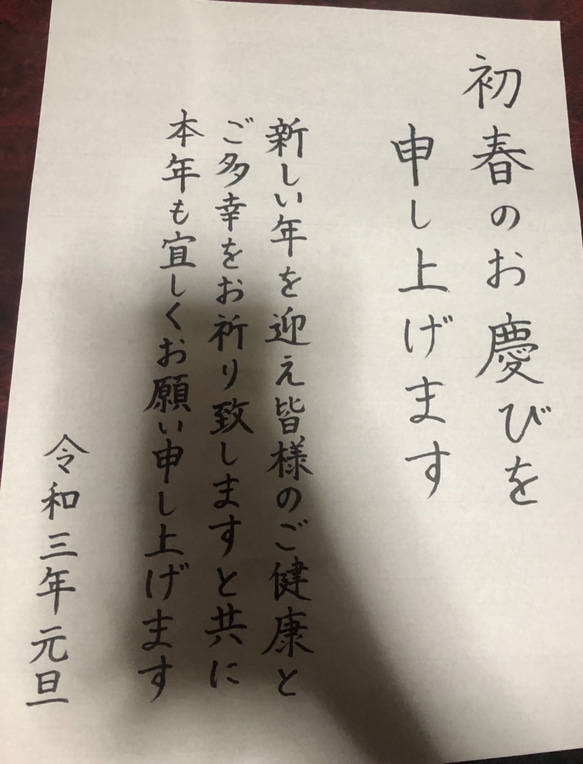 初春のお慶びを
申し上げます
新しい年を迎え皆様のご健康と
ご多幸をお祈り致しますと共に
本年も宜しくお願い申し上げます
令和三年元旦